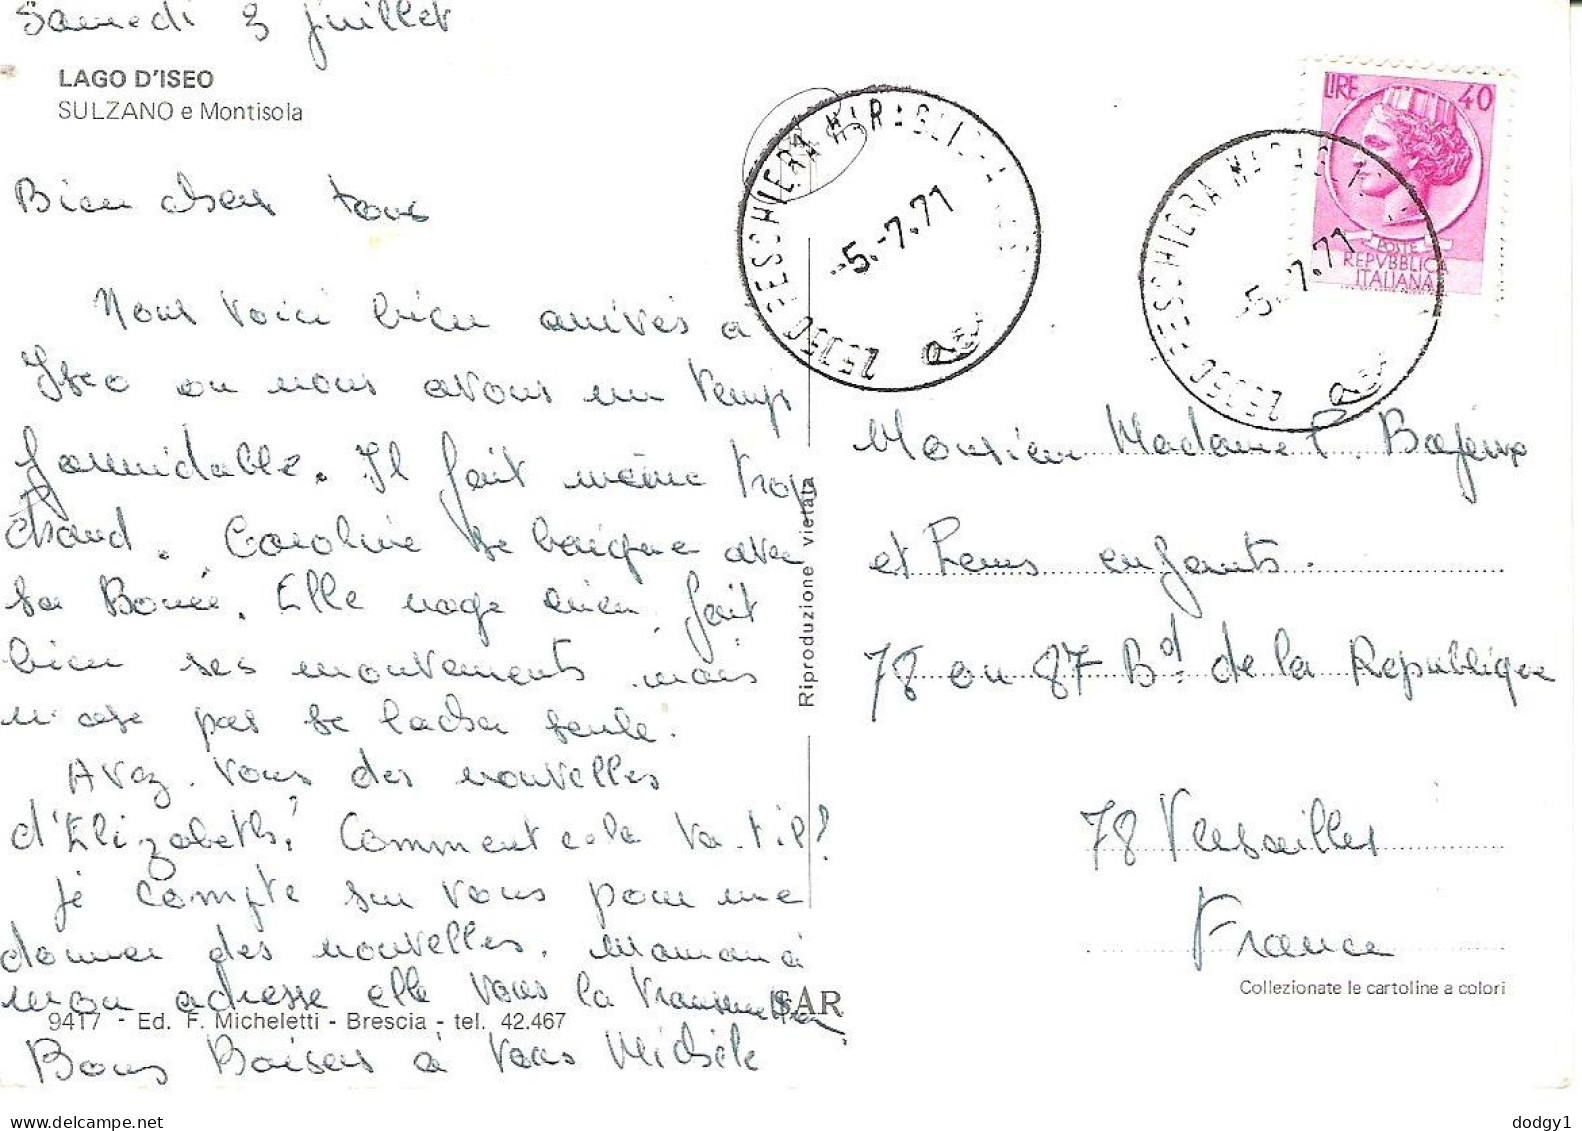 Samedi 3 juillet
LAGO D'ISEO
SULZANO e Montisola
Bien chers tous
Nous voici bien arrivés à
Iseo ou nous avons un temps
formidable. Il fait même trop
chaud. Caroline se baigne avec
sa Bouée. Elle nage bien, fait
bien ses mouvements mais
n'ose pas se lacher seule.
Avez-vous des nouvelles
d'Elizabeth? Comment cela va-t-il?
Je compte sur vous pour me
donner des nouvelles. Maman à
mon adresse elle vous la transmettra
9417 - Ed. F. Micheletti - Brescia - tel. 42.467
SAR
Bons Baisers à vous Michèle
Riproduzione vietata
25050 PESCHIERA MARAGLIO
-5.-7.71
25050 PESCHIERA MARAGLIO
-5.-7.71
LIRE 40
POSTE
REPVBBLICA
ITALIANA
Monsieur Madame P.
et Leurs enfants.
78 ou 87 Bd de la Republique
78 Versailles
France
Collezionate le cartoline a colori
dodgy1